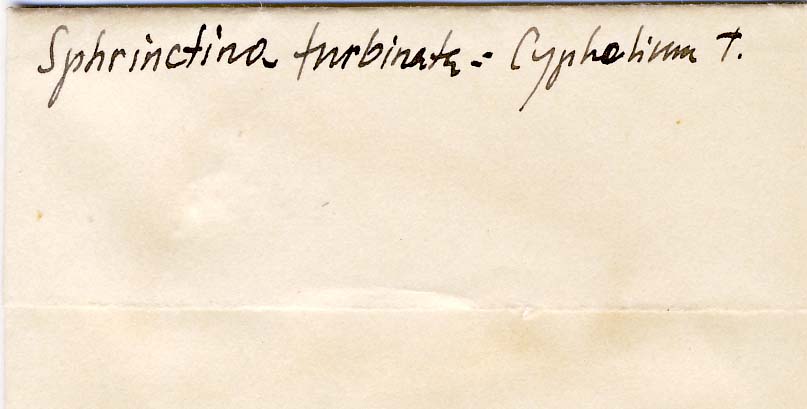 Sphrinctina turbinata = Cyphelium t.